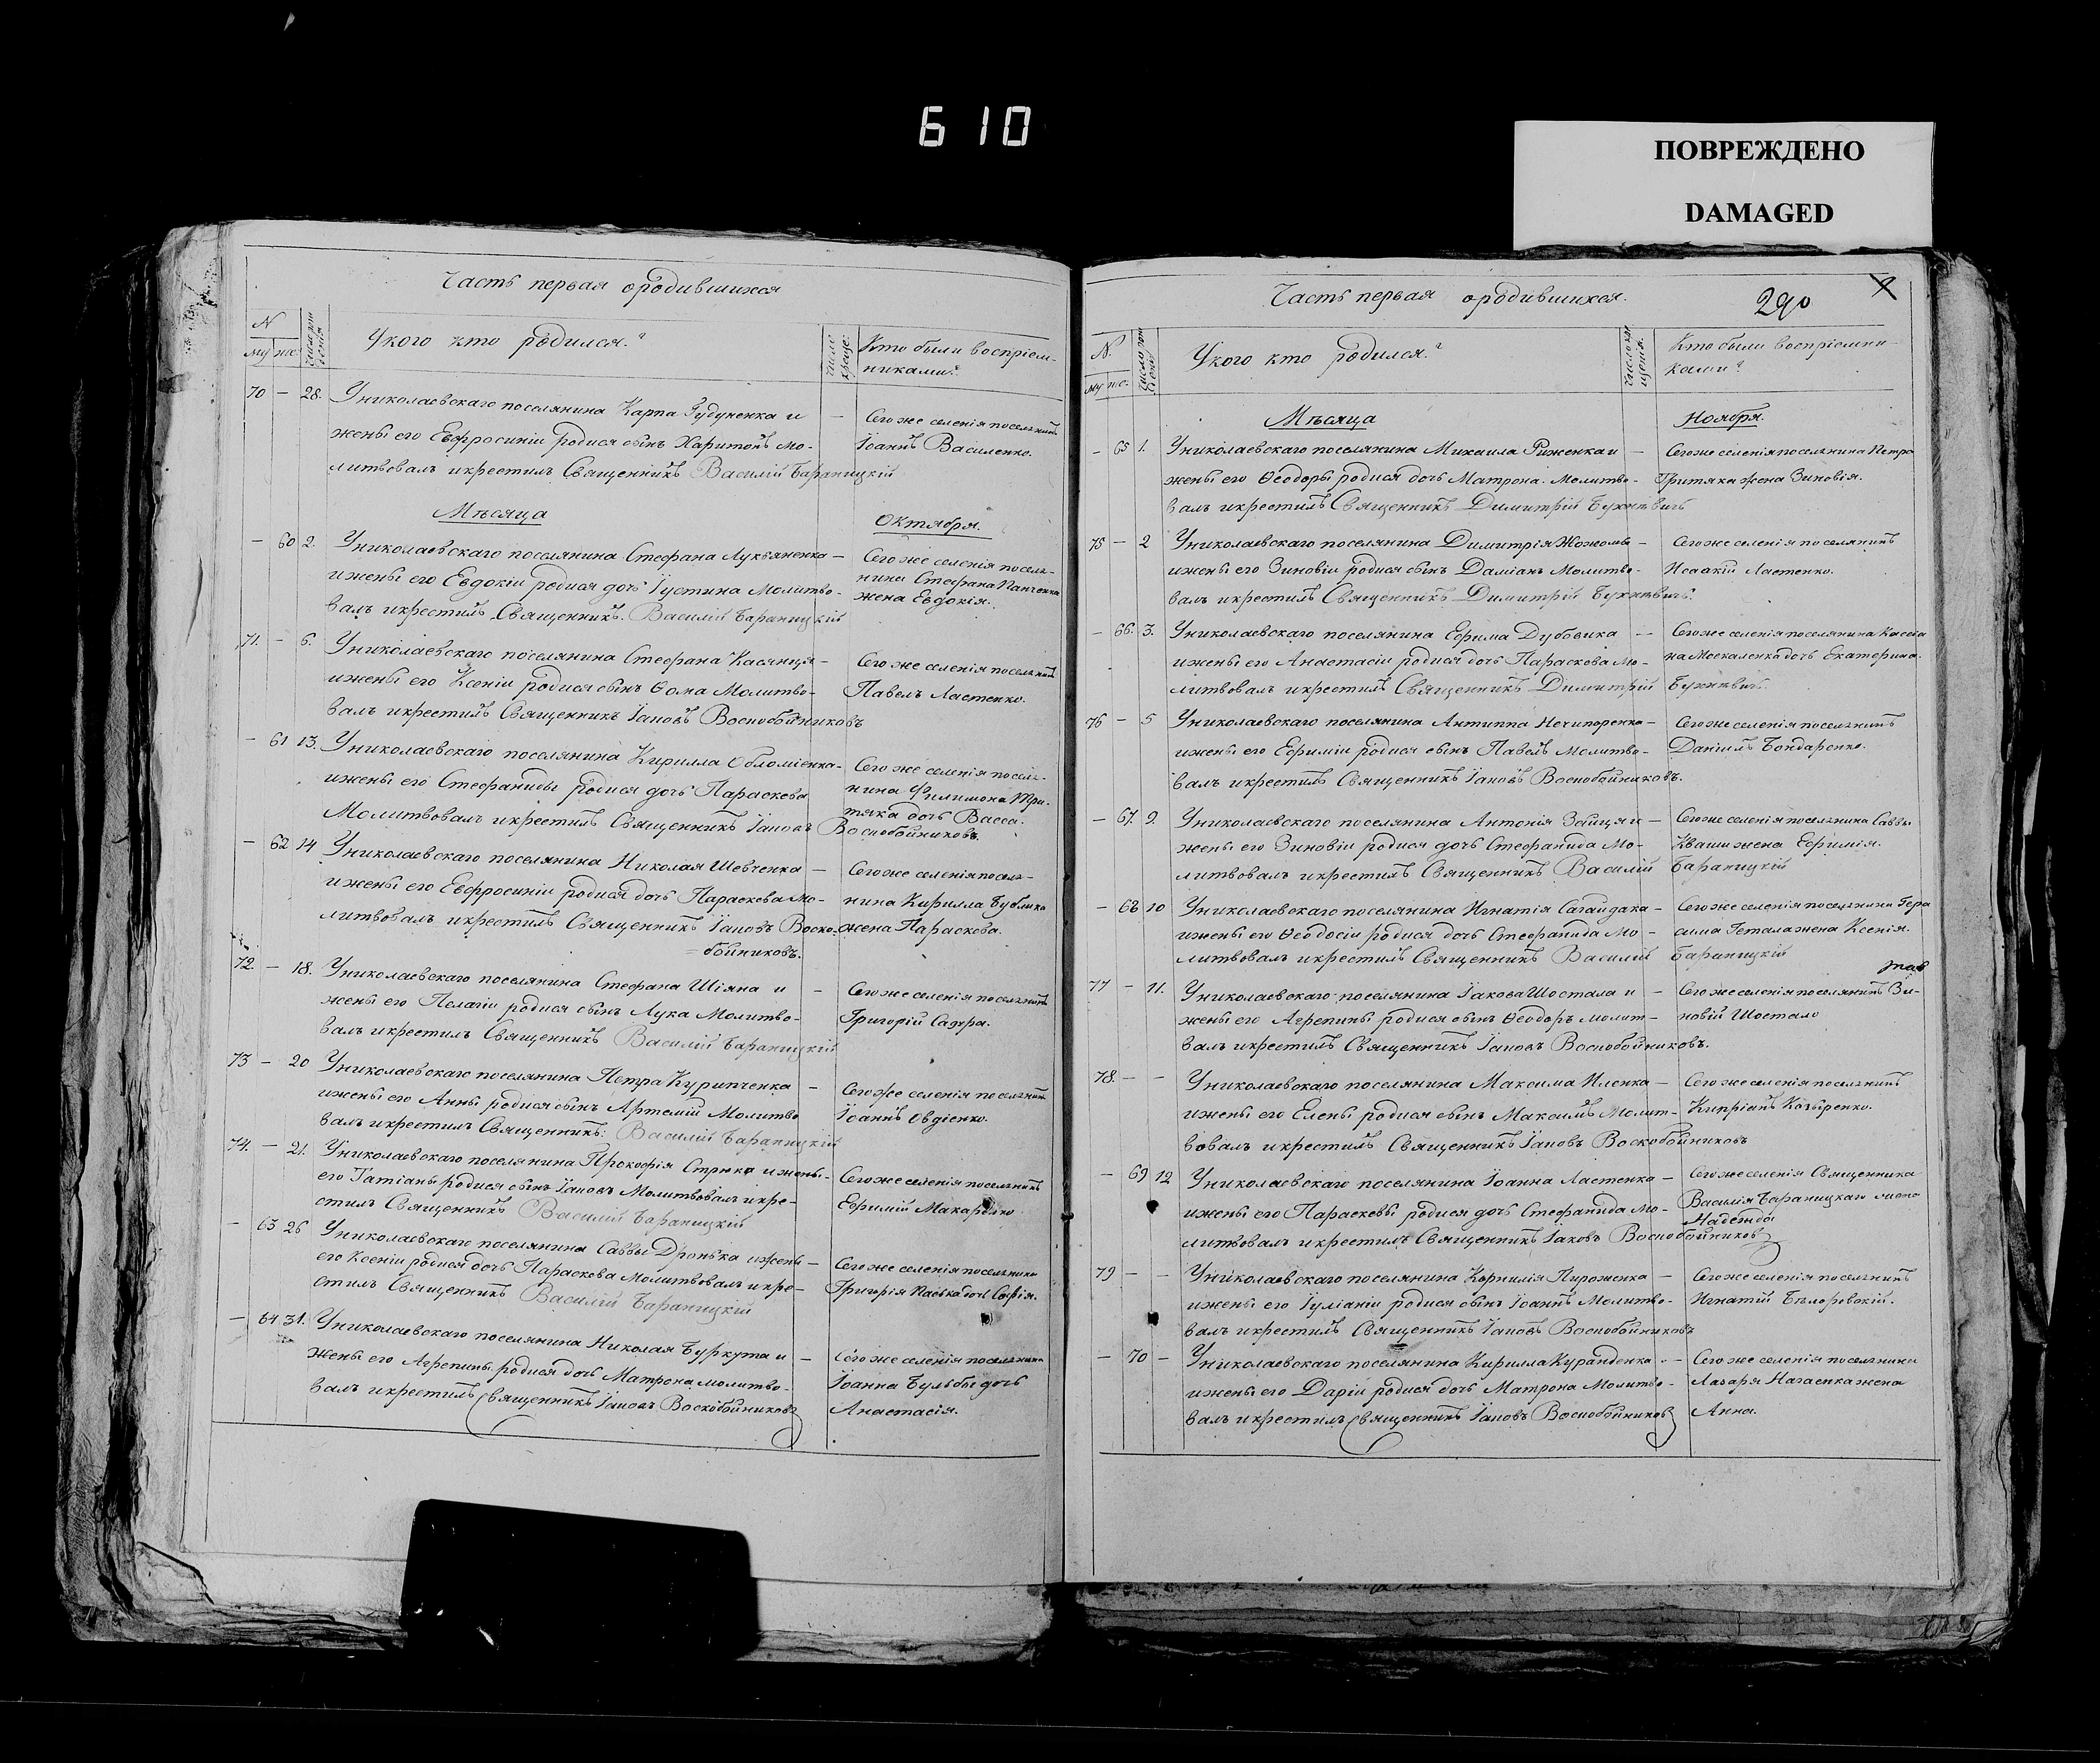 610
ПОВРЕЖДЕНО
DAMAGED
Часть первая ородившихся
N
му же.
Укого кто родился?
Кто были воспріем-
никами?
70 — 28. Униколаевскаго поселянина Карпа Гудуненка и —
жены его Евфросиніи родися сынъ Харитонъ мо-
литвовалъ икрестилъ Священникъ Василій Бараницкій
Сегоже селенія поселянинъ
Іоаннъ Василенко.
Мѣсяца Октября.
— 60 2. Униколаевскаго поселянина Стефана Лукьяненка —
ижены его Евдокіи родися дочь Іустина Молитво-
валъ икрестилъ Священникъ. Василій Бараницкій
Сегоже селенія поселя-
нина Стефана Панченка
жена Евдокія.
71. — 6. Униколаевскаго поселянина Стефана Касянця —
ижены его Ксеніи родися сынъ Ѳома Молитво-
валъ икрестилъ Священникъ Іаковъ Воскобойниковъ
Сегоже селенія поселянинъ
Павелъ Ластенко.
— 61 13. Униколаевскаго поселянина Кирилла
ижены его Стефаниды родися дочь Параскева
Молитвовалъ икрестилъ Священникъ Іаковъ Воскобойниковъ.
Сегоже селенія поселя-
нина Филимона Гри-
тяка дочь Васса.
— 62 14 Униколаевскаго поселянина Николая Шевченка —
ижены его Евфросиніи родися дочь Параскева мо-
литвовалъ икрестилъ Священникъ Іаковъ Воско-
=бойниковъ.
Сегоже селенія поселя-
нина Кирилла Бублика
жена Параскева.
72. — 18. Униколаевскаго поселянина Стефана Шіяна и —
жены его Пелагіи родися сынъ Лука Молитво-
валъ икрестилъ Священникъ Василій Бараницкій
Сегоже селенія поселянинъ
Григорій
73 — 20 Униколаевскаго поселянина Петра Курипченка —
ижены его Анны родися сынъ Артемій Молитво
валъ икрестилъ Священникъ: Василій Бараницкій
Сегоже селенія поселянинъ
Іоаннъ Овдіенко.
74. — 21. Униколаевскаго поселянина Прокофія Стрюка ижены —
его Татіаны родися сынъ Іаковъ Молитвовалъ икре-
стилъ Священникъ Василій Бараницкій
Сегоже селенія поселянинъ
Ефимій Макаренко
— 63 26 Униколаевскаго поселянина Саввы Дронька ижены —
его Ксеніи родися дочь Параскева Молитвовалъ икре-
стилъ Священникъ Василій Бараницкій
Сегоже селенія поселянина
Григорія дочь Софія.
— 64 31. Униколаевскаго поселянина Николая Буркута и —
жены его Агрепины родися дочь Матрона молитво-
валъ икрестилъ Священникъ Іаковъ Воскобойниковъ
Сегоже селенія поселянина
Іоанна Бульбы дочь
Анастасія.
Часть первая ородившихся.
290
N.
му же.
Укого кто родился?
Кто были воспріемни-
ками?
Мѣсяца Ноября.
— 65 1. Униколаевскаго поселянина Михаила Риженка и —
жены его Ѳеодоры родися дочь Матрона. Молитво-
валъ икрестилъ Священникъ Димитрій
Сегоже селенія поселянина Петра
Гритяка жена Зиновія.
75 — 2 Униколаевскаго поселянина Димитрія —
ижены его Зиновіи родися сынъ Даміанъ Молитво-
валъ икрестилъ Священникъ Димитрій
Сегоже селенія поселянинъ
Исаакій Ластенко.
— 66. 3. Униколаевскаго поселянина Ефима Дубовика —
ижены его Анастасіи родися дочь Параскева Мо-
литвовалъ икрестилъ Священникъ Димитрій
Сегоже селенія поселянина Касья
на Москаленка дочь Екатерина.
76 — 5 Униколаевскаго поселянина Антиппа Нечипоренка —
ижены его Ефиміи родися сынъ Павелъ Молитво-
валъ икрестилъ Священникъ Іаковъ Воскобойниковъ.
Сегоже селенія поселянинъ
Даніилъ Бондаренко.
— 67. 9. Униколаевскаго поселянина Антонія Зайця и —
жены его Зиновіи родися дочь Стефанида Мо-
литвовалъ икрестилъ Священникъ Василій Бараницкій
Сегоже селенія поселянина Саввы
Кваши жена Ефимія.
— 68 10 Униколаевскаго поселянина Игнатія Сагайдака —
ижены его Ѳеодосіи родися дочь Стефанида Мо-
литвовалъ икрестилъ Священникъ Василій Бараницкій
Сегоже селенія поселянина Гера
сима Гетала жена Ксенія.
77 — 11. Униколаевскаго поселянина Іакова Шостала и —
жены его Агрепины родися сынъ Ѳеодоръ молит-
валъ икрестилъ Священникъ Іаковъ Воскобойниковъ.
Сегоже селенія поселянинъ Зи-
новій Шостало
78. — — Униколаевскаго поселянина Максима Иленка —
ижены его Елены родися сынъ Максимъ Молит-
вовалъ икрестилъ Священникъ Іаковъ Воскобойниковъ
Сегоже селенія поселянинъ
Кипріанъ Козыренко.
— 69 12 Униколаевскаго поселянина Іоанна Ластенка —
ижены его Параскевы родися дочь Стефанида Мо-
литвовалъ икрестилъ Священникъ Іаковъ Воскобойниковъ
Сегоже селенія Священника
Василія Бараницкаго
Надежда
79 — — Униколаевскаго поселянина Корнилія Пироженка —
ижены его Іуліаніи родися сынъ Іоаннъ Молитво-
валъ икрестилъ Священникъ Іаковъ Воскобойниковъ
Сегоже селенія поселянинъ
Игнатій
— 70 — Униколаевскаго поселянина Кирилла —
ижены его Даріи родися дочь Матрона Молитво-
валъ икрестилъ Священникъ Іаковъ Воскобойниковъ
Сегоже селенія поселянина
Лазаря жена
Анна.